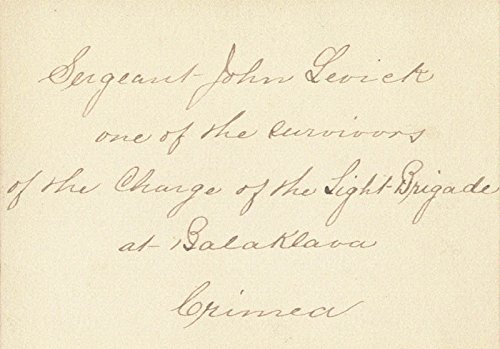 Sergeant John Levick
one of the survivors
of the Charge of the Light Brigade
at Balaklava
Crimea